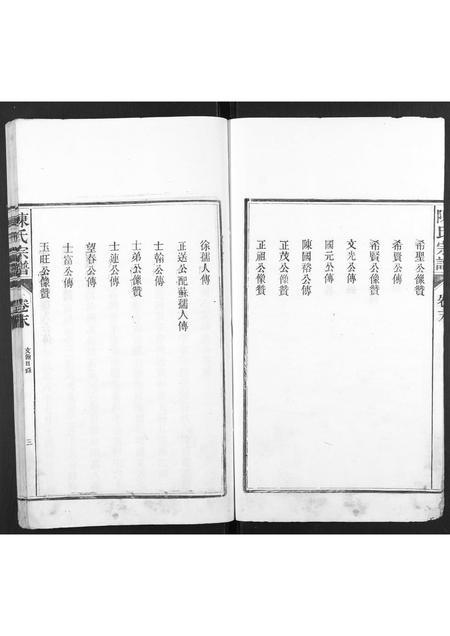 陳氏宗譜
卷末
希聖公像贊
希賢公傳
希賢公像贊
文光公傳
國元公傳
陳國裕公傳
正茂公像贊
正祖公像贊
徐孺人傳
正送公配蘇孺人傳
士翰公傳
士弟公像贊
士蓮公傳
望春公傳
士富公傳
玉旺公像贊
陳氏宗譜
卷末
文翰目錄
三